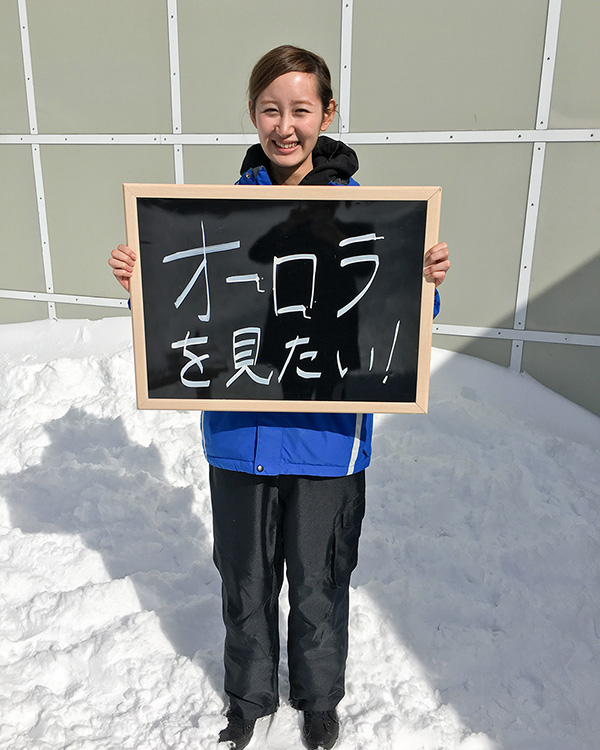 オーロラ
を見たい!